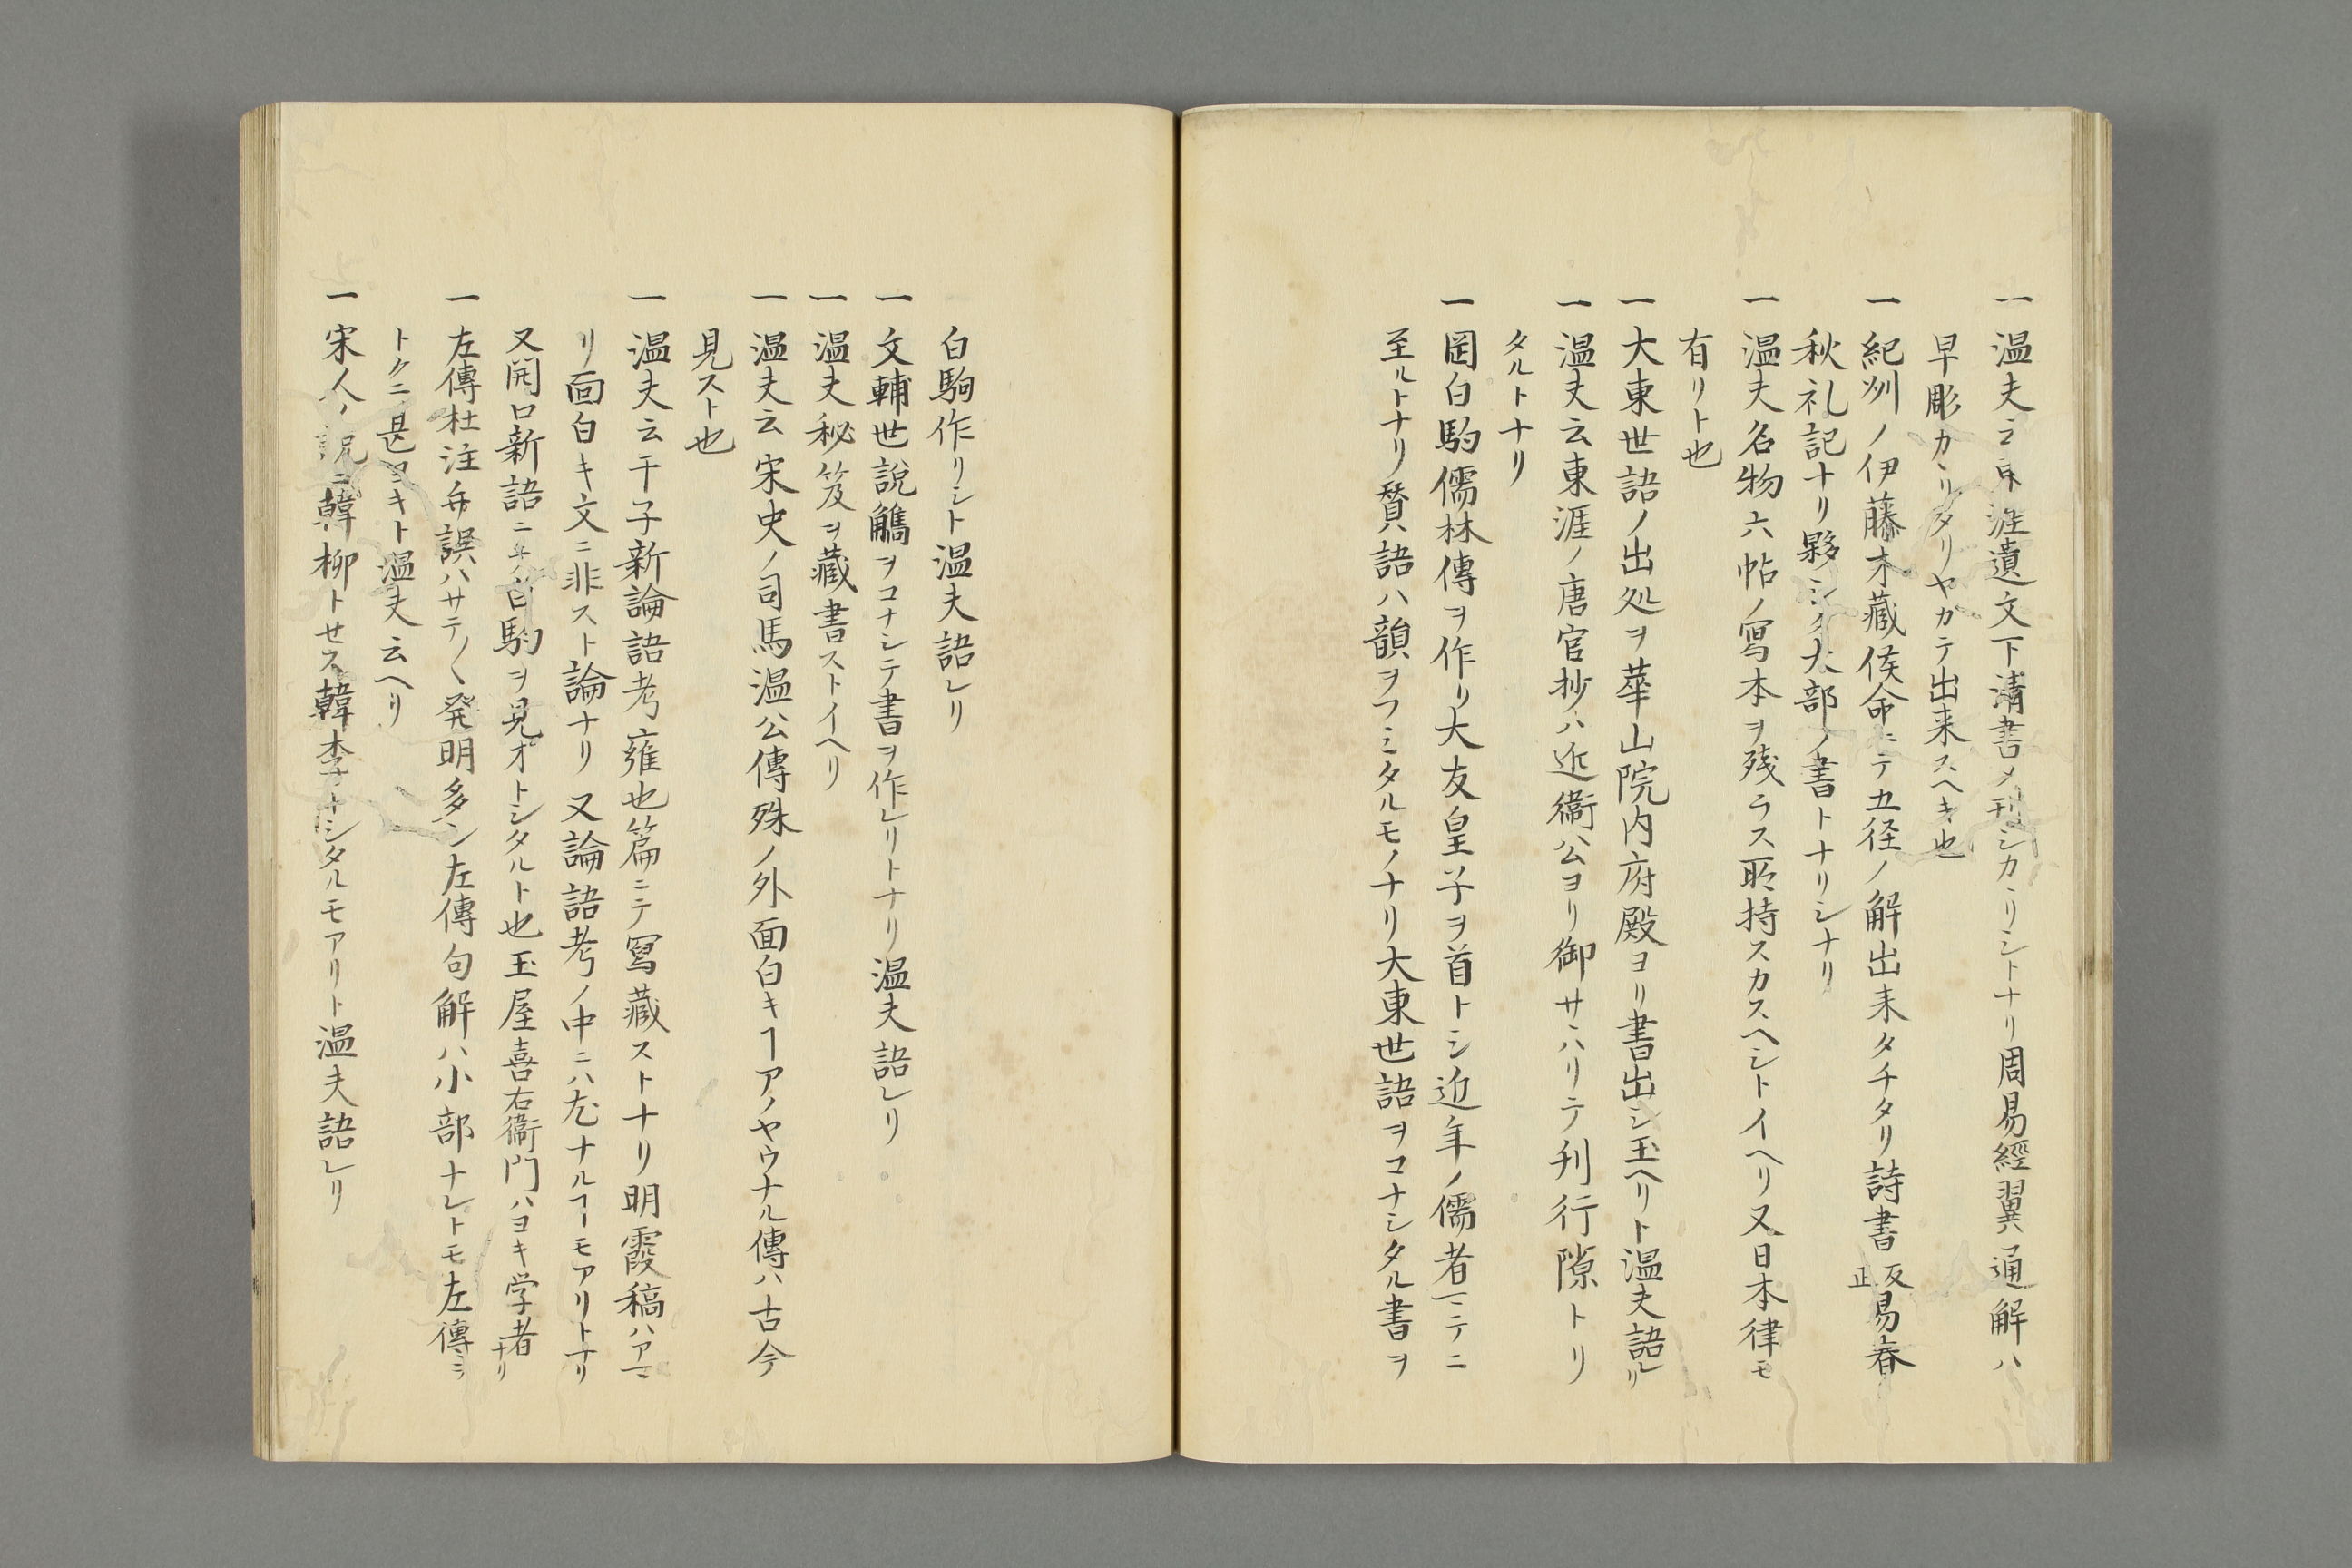 一温夫云東涯遺文下淸書〆刊シカヽリシトナリ周易經翼通解ハ
早彫カヽリタリヤガテ出来スヘキ也
一紀州ノ伊藤才藏侯命ニテ五径ノ解出来タチタリ詩書正反易春
秋礼記トナリ夥シク大部ノ書トナリシナリ
一温夫名物六帖ノ寫本ヲ残ラス所持スカスヘシトイヘリ又日本律モ
有リト也
一大東世語ノ出処ヲ華山院内府殿ヨリ書出シ玉ヘリト温夫語レリ
一温夫云東涯ノ唐官抄ハ近衞公ヨリ御サハリテ刊行隙トリ
タルトナリ
一岡白駒儒林傳ヲ作リ大友皇子ヲ首トシ近年ノ儒者ニテニ
至ルトナリ賛語ハ韻ヲフミタルモノナリ大東世語ヲコナシタル書ヲ
白駒作リシト温夫語レリ
一文輔世說觿ヲコナシテ書ヲ作レリトナリ温夫語レリ
一温夫秘笈ヲ藏書ストイヘリ
一温夫云宋史ノ司馬温公傳殊ノ外面白キヿアノヤウナル傳ハ古今
見スト也
一温夫云干子新論語考雍也篇ニテ寫藏ストナリ明霞稿ハアマ
リ面白キ文ニ非スト論ナリ又論語考ノ中ニハ尤ナルヿモアリトナリ
又開口新語ニテ白駒ヲ見オトシタルト也玉屋喜右衞門ハヨキ学者ナリ
一左傳杜注弁誤ハサテ〱発明多シ左傳句解ハ小部ナレトモ左傳ヲ
トクニ甚ヨキト温夫云ヘリ
一宋人ノ説ニ韓柳トセス韓李トナシタルモアリト温夫語レリ